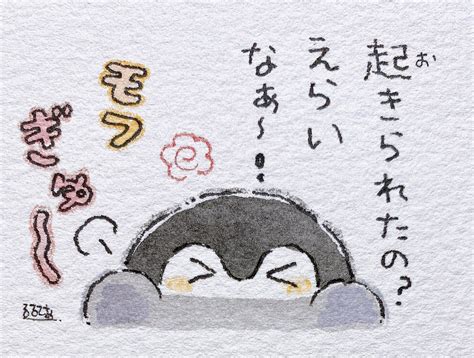 起きられたの?
お
えらい
なぁ〜!
モフ
ぎゅー
るるてあ